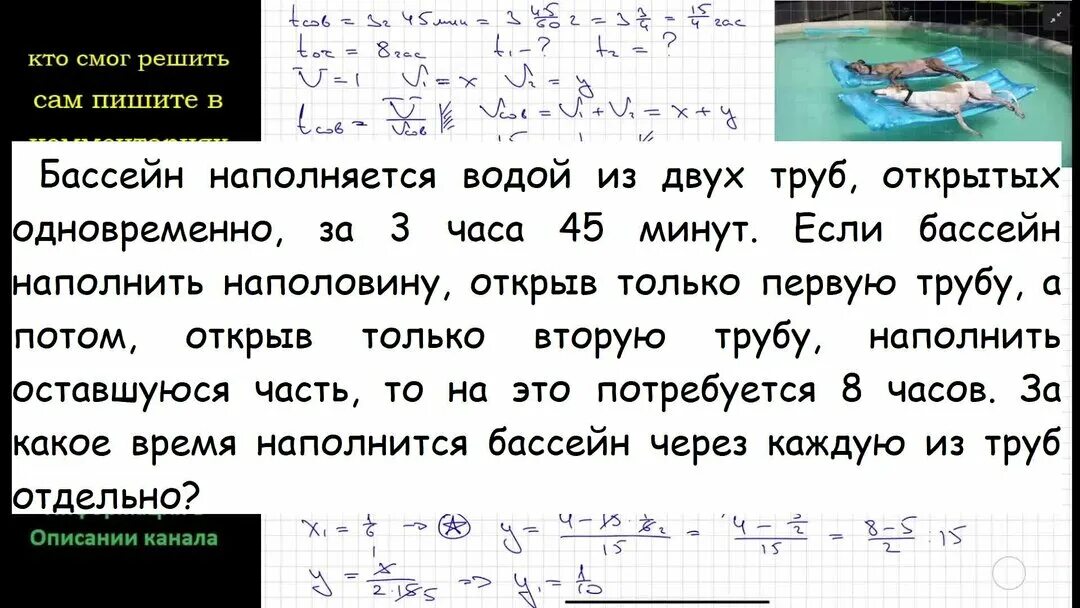 кто смог решить
сам пишите в
комментариях
tсов = 3ч 45 мин = 3 45/60 ч = 3 3/4 = 15/4 час
8 час t₁ - ? t₂ = ?
V = 1 V₁ = x V₂ = y
tсов = V/Vсов Vсов = V₁ + V₂ = x + y
Бассейн наполняется водой из двух труб, открытых
одновременно, за 3 часа 45 минут. Если бассейн
наполнить наполовину, открыв только первую трубу, а
потом, открыв только вторую трубу, наполнить
оставшуюся часть, то на это потребуется 8 часов. За
какое время наполнится бассейн через каждую из труб
отдельно?
Описании канала
x₁ = 1/6 → y = (4 - 15 · 1/6)/15 = (4 - 5/2)/15 = (8-5)/2 : 15
y = 3/(2·15) => y₁ = 1/10